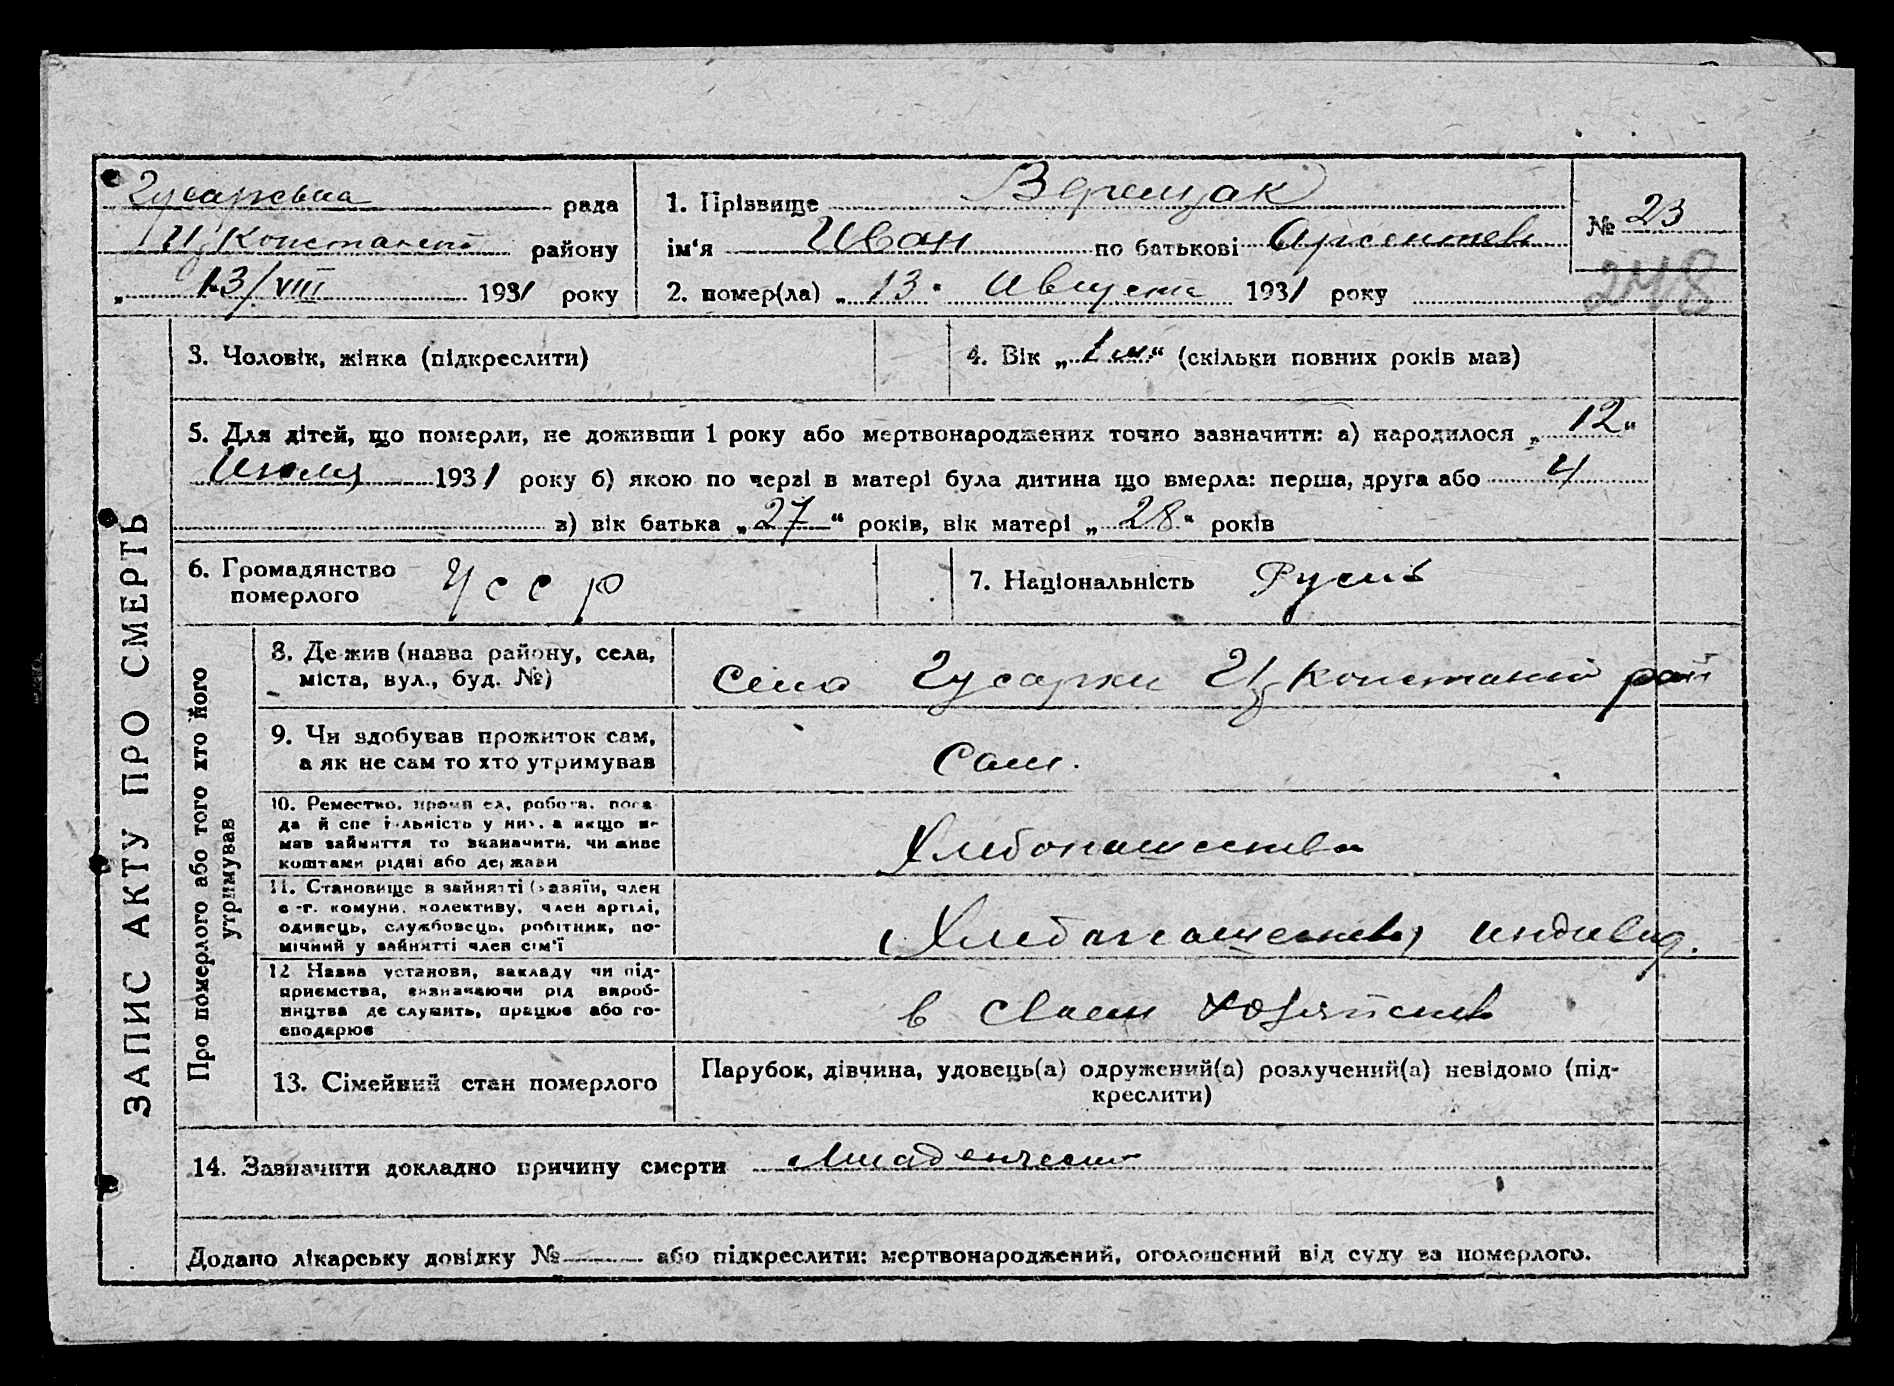 Гусарская рада
Ц Констант району
„ 13/VIII 1931 року
1. Прізвище Верещак
ім‘я Иван по батькові Арсентев
2. помер(ла) „ 13 " Августа 1931 року
№ 23
248
ЗАПИС АКТУ ПРО СМЕРТЬ
3. Чоловік, жінка (підкреслити)
4. Вік „ 1 м “ (скільки повних років мав)
5. Для дітей, що померли, не доживши 1 року або мертвонароджених точно зазначити: а) народилося „ 12 “
Июля 1931 року б) якою по черзі в матері була дитина що вмерла: перша, друга або 4
в) вік батька „ 27 “ років, вік матері „ 28 “ років
6. Громадянство
померлого
УССР
7. Національність Руси
Про померлого або того хто його
утримував
8. Де жив (назва району, села,
міста, вул., буд. №)
Село Гусарки Ц Констант рай
9. Чи здобував прожиток сам,
а як не сам то хто утримував
Сам.
10. Ремество, промисел, робота, поса-
да й спеціальність у ній, а якщо не
мав зайняття то вказачити, чи живе
коштами рідні або держави
Хлебопашество
11. Становище в зайнятті (хазяїн, член
с.-г. комуни, колективу, член артілі,
одинець, службовець, робітник, по-
мічний у зайнятті член сім'ї
Хлебопашество индивид.
12 Назва установи, закладу чи під-
приємства, визначаючи рід вироб-
ництва де служить, працює або го-
сподарює
в своем хозяйстве
13. Сімейний стан померлого
Парубок, дівчина, удовець(а) одружений(а) розлучений(а) невідомо (під-
креслити)
14. Зазначити докладно причину смерти Младенческ
Додано лікарську довідку № або підкреслити: мертвонароджений, оголошений від суду за померлого.